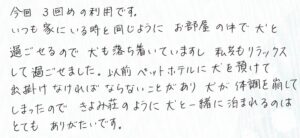 今回 3回めの利用です。
いつも家にいる時と同じように お部屋の中で犬と
過ごせるので 犬も落ち着いていますし 私共もリラックス
して過ごせました。以前 ペットホテルに犬を預けて
出掛けなければならないことがあり 犬が体調を崩して
しまったので きよみ荘のように犬と一緒に泊まれるのは
とても ありがたいです。